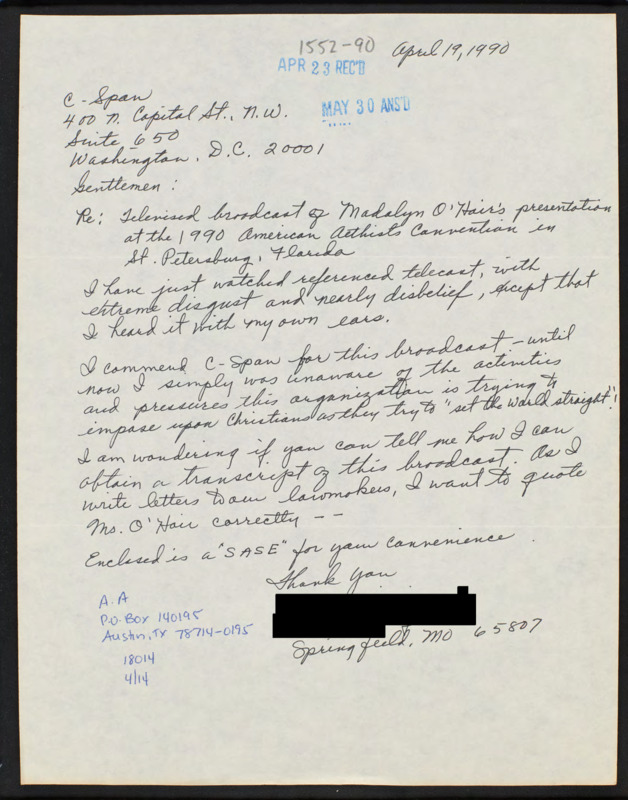 1552-90 April 19, 1990
APR 23 REC'D
C-Span
400 N. Capital St., N.W.
MAY 30 ANS'D
Suite 650
Washington, D.C. 20001
Gentlemen:
Re: Televised broadcast of Madalyn O'Hair's presentation
at the 1990 American Aethists Convention in
St. Petersburg, Florida
I have just watched referenced telecast, with
extreme disgust and nearly disbelief, except that
I heard it with my own ears.
I commend C-Span for this broadcast - until
now I simply was unaware of the activities
and pressures this organization is trying to
impose upon Christians as they try to "set the world straight"!
I am wondering if you can tell me how I can
obtain a transcript of this broadcast. As I
write letters to our lawmakers, I want to quote
Ms. O'Hair correctly --
Enclosed is a "SASE" for your convenience.
Thank you
Springfield, MO 65807
A.A
P.O. Box 140195
Austin, TX 78714-0195
18014
4/14